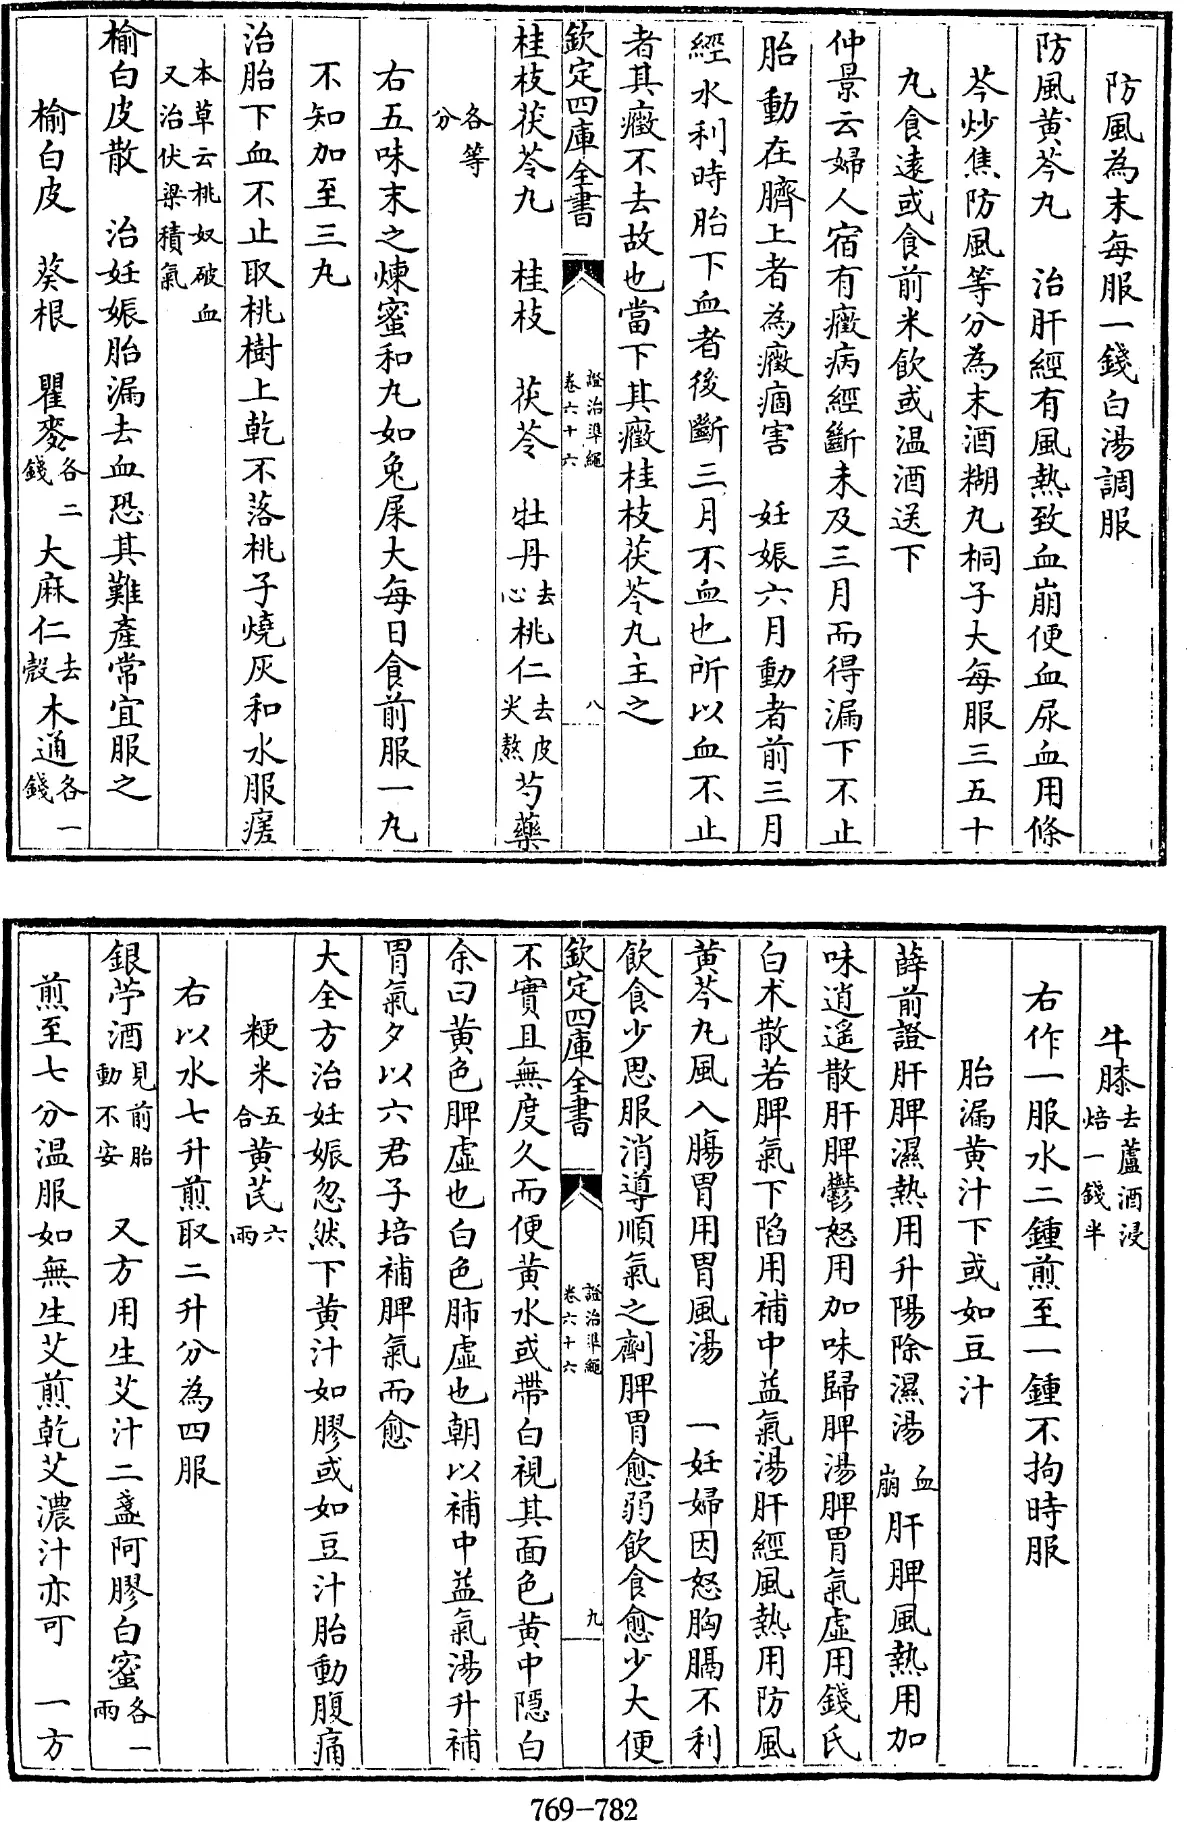 防風為末每服一錢白湯調服
防風黄芩丸　治肝經有風熱致血崩便血尿血用條
芩炒焦防風等分為末酒糊丸桐子大每服三五十
丸食遠或食前米飲或温酒送下
仲景云婦人宿有癥病經斷未及三月而得漏下不止
胎動在臍上者為癥痼害　妊娠六月動者前三月
經水利時胎下血者後斷三月不血也所以血不止
者其癥不去故也當下其癥桂枝茯苓丸主之
欽定四庫全書　證治準繩卷六十六　八
桂枝茯苓丸　桂枝　茯苓　牡丹去心　桃仁去皮尖熬　芍藥
各等分
右五味末之煉蜜和丸如兔屎大每日食前服一丸
不知加至三丸
治胎下血不止取桃樹上乾不落桃子燒灰和水服瘥
本草云桃奴破血又治伏梁積氣
榆白皮散　治妊娠胎漏去血恐其難產常宜服之
榆白皮　葵根　瞿麥各二錢　大麻仁去殼　木通各一錢
牛膝去蘆酒浸焙一錢半
右作一服水二鍾煎至一鍾不拘時服
胎漏黄汁下或如豆汁
薛前證肝脾濕熱用升陽除濕湯血崩肝脾風熱用加
味逍遥散肝脾鬱怒用加味歸脾湯脾胃氣虛用錢氏
白术散若脾氣下陷用補中益氣湯肝經風熱用防風
黄芩丸風入腸胃用胃風湯　一妊婦因怒胸膈不利
飲食少思服消導順氣之劑脾胃愈弱飲食愈少大便
欽定四庫全書　證治準繩卷六十六　九
不實且無度久而便黄水或帶白視其面色黄中隱白
余曰黄色脾虛也白色肺虛也朝以補中益氣湯升補
胃氣夕以六君子培補脾氣而愈
大全方治妊娠忽然下黄汁如膠或如豆汁胎動腹痛
粳米五合　黄芪六兩
右以水七升煎取二升分為四服
銀苧酒見前胎動不安　又方用生艾汁二盞阿膠白蜜各一兩
煎至七分温服如無生艾煎乾艾濃汁亦可　一方
769-782